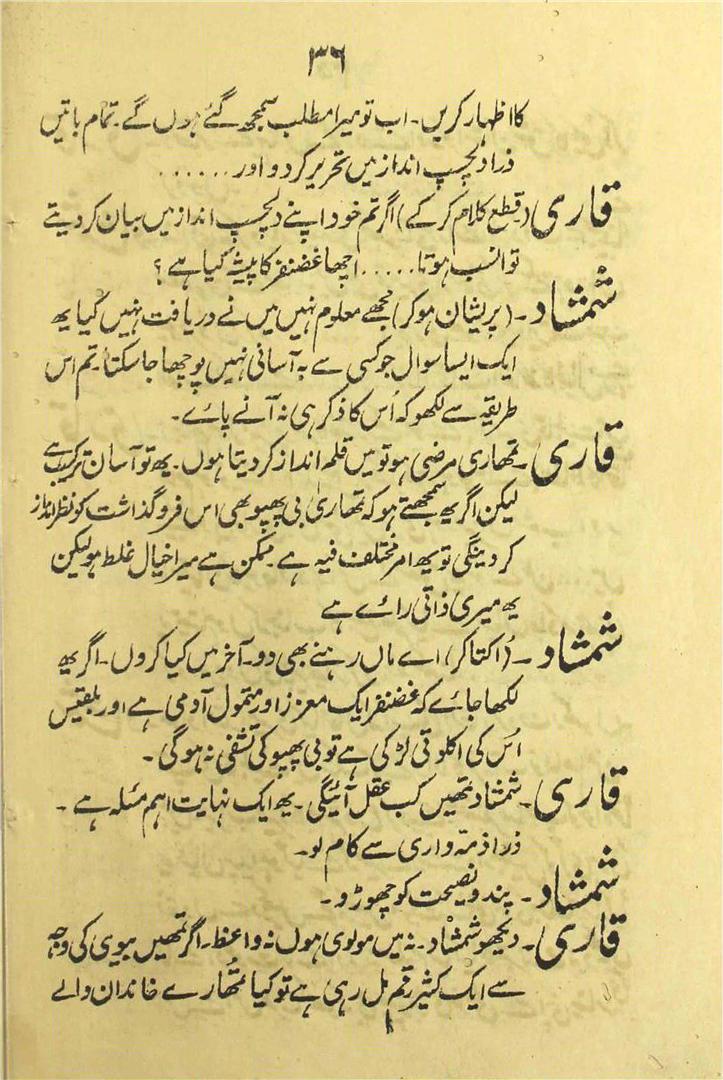 ۳۶
کا اظہار کریں۔ اب تو میرا مطلب سمجھ گئے ہوں گے۔ تمام باتیں
ذرا دلچسپ انداز میں تحریر کر دو اور ......
قاری (قطع کلام کر کے) اگر تم خود اپنے دلچسپ انداز میں بیان کر دیتے
تو انسب ہوتا ..... اچھا غضنفر کا پیشہ کیا ہے؟
شمشاد۔ (پریشان ہو کر) مجھے معلوم نہیں میں نے دریافت نہیں کیا یہ
ایک ایسا سوال جو کسی سے بہ آسانی نہیں پوچھا جا سکتا۔ تم اس
طریقہ سے لکھو کہ اُس کا ذکر ہی نہ آنے پائے۔
قاری۔ تمھاری مرضی ہو تو میں قلم انداز کر دیتا ہوں۔ یہ تو آسان ترکیب ہے
لیکن اگر یہ سمجھتے ہو کہ تمھاری بی پھپو بھی اس فروگذاشت کو نظر انداز
کر دینگی تو یہ امر مختلف فیہ ہے۔ ممکن ہے میرا خیال غلط ہو لیکن
یہ میری ذاتی رائے ہے
شمشاد۔ (اکتا کر) اے ماں رہنے بھی دو۔ آخر میں کیا کروں۔ اگر یہ
لکھا جائے کہ غضنفر ایک معزز اور متمول آدمی ہے اور بلقیس
اُس کی اکلوتی لڑکی ہے تو بی پھپو کی تشفی نہ ہوگی۔
قاری۔ شمشاد تمھیں کب عقل آئیگی۔ یہ ایک نہایت اہم مسئلہ ہے۔
ذرا ذمہ واری سے کام لو۔
شمشاد۔ پند و نصیحت کو چھوڑو۔
قاری۔ دیکھو شمشاد۔ نہ میں مولوی ہوں نہ واعظ۔ اگر تمھیں بیوی کی وجہ
سے ایک کثیر رقم مل رہی ہے تو کیا تمھارے خاندان والے